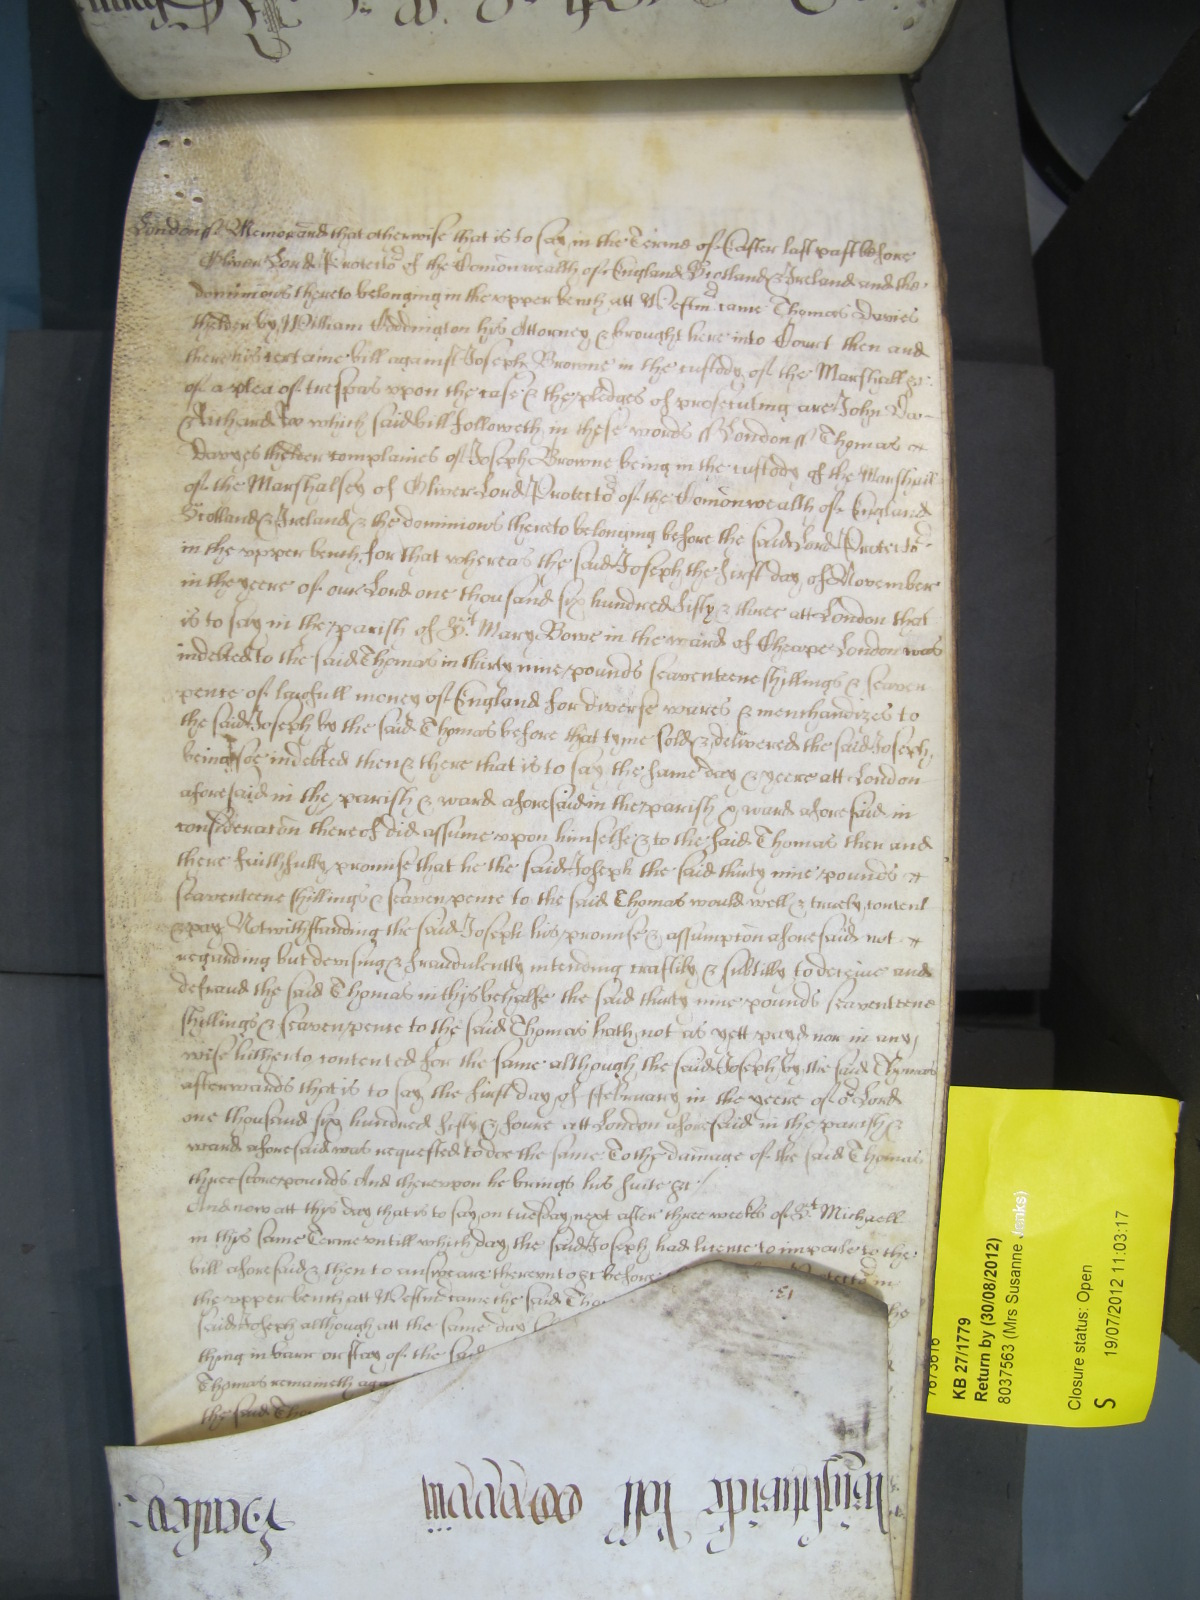 London ss Memorand that otherwise that is to say in the Terme of Easter last past before
Oliver Lord Protector of the Comonwealth of England Scotland & Ireland and the
dominions thereto belonging in the upper bench att Westmr came Thomas Davies
thelder by William Eddington his Attorney & brought here into Court then and
there his certaine bill against Joseph Browne in the custody of the Marshall &c.
of a plea of trespas upon the case & the pledges of prosecuting are John Doo
& Richard Roo which said bill followeth in these words ss London ss Thomas
Davyes thelder complaines of Joseph Browne being in the custody of the Marshall
of the Marshalsey of Oliver Lord Protector of the Comonwealth of England
Scotland & Ireland & the dominions thereto belonging before the said Lord Protector
in the upper bench for that whereas the said Joseph the first day of November
in the yeere of our Lord one thousand six hundred fifty & three att London that
is to say in the parish of St Mary Bowe in the ward of Cheape London was
indebted to the said Thomas in thirty nine pounds seaventeene shillings & seaven
pence of lawfull money of England for diverse wares & merchandizes to
the said Joseph by the said Thomas before that tyme sold & delivered the said Joseph
being soe indebted then & there that is to say the same day & yeere att London
aforesaid in the parish & ward aforesaid in the parish & ward aforesaid in
consideracon thereof did assume upon himselfe & to the said Thomas then and
there faithfully promise that he the said Joseph the said thirty nine pounds
seaventeene shillings & seaven pence to the said Thomas would well & truely content
& pay Notwithstanding the said Joseph his promise & assumpcon aforesaid not
regarding but devising & fraudulently intending craftily & subtilly to deceive and
defraud the said Thomas in this behalfe the said thirty nine pounds seaventeene
shillings & seaven pence to the said Thomas hath not as yett payd nor in any
wise hitherto contented for the same although the said Joseph by the said Thomas
afterwards that is to say the first day of ffebruary in the yeere of or Lord
one thousand six hundred fifty & foure att London aforesaid in the parish &
ward aforesaid was requested to doe the same To the damage of the said Thomas
threescore pounds And thereupon he brings his suite &c
And now att this day that is to say on tuesday next after three weekes of St Michaell
in this same Terme untill which day the said Joseph had licence to imparle to the
bill aforesaid & then to answeare thereunto &c before
the upper bench att Westmr came the said Tho
said Joseph although att the same day
thing in barr or stay of the said
Thomas remaineth aga
the said Tho
KB 27/1779
Return by (30/08/2012)
8037563 (Mrs Susanne Jenks)
Closure status: Open
S 19/07/2012 11:03:17